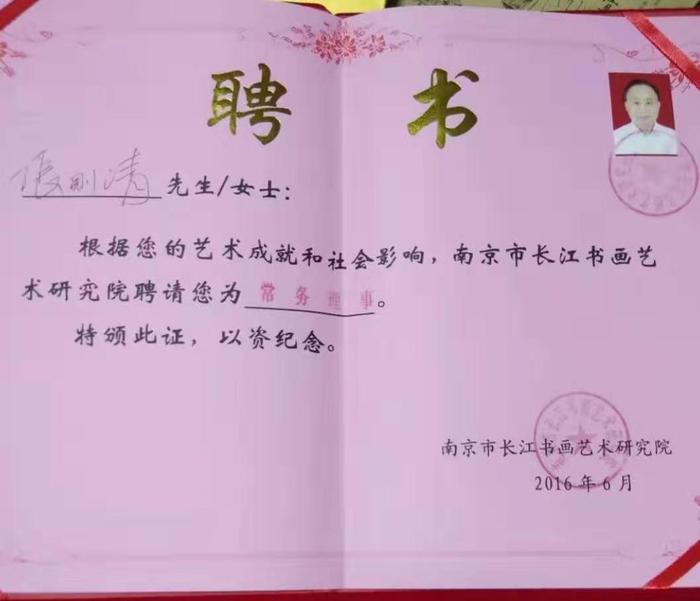 聘书
张刚清 先生/女士:
根据您的艺术成就和社会影响,南京市长江书画艺
术研究院聘请您为常务理事。
特颁此证,以资纪念。
南京市长江书画艺术研究院
2016年6月